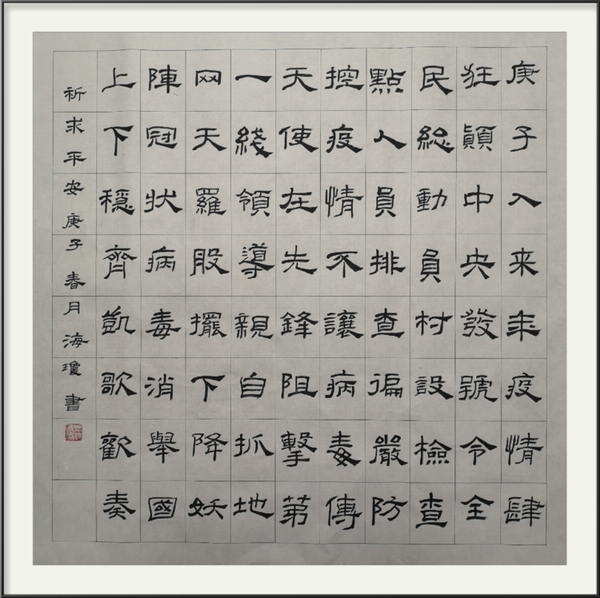 庚子入来年疫情肆
狂顛中央發號令全
民総動員村設檢查
點人員排查徧嚴防
控疫情不讓病毒傳
天使在先鋒阻擊第
一綫領導親自抓地
网天羅股擺下降妖
陣冠状病毒消舉國
上下穩齊凱歌歡奏
祈求平安庚子春月海瓊書